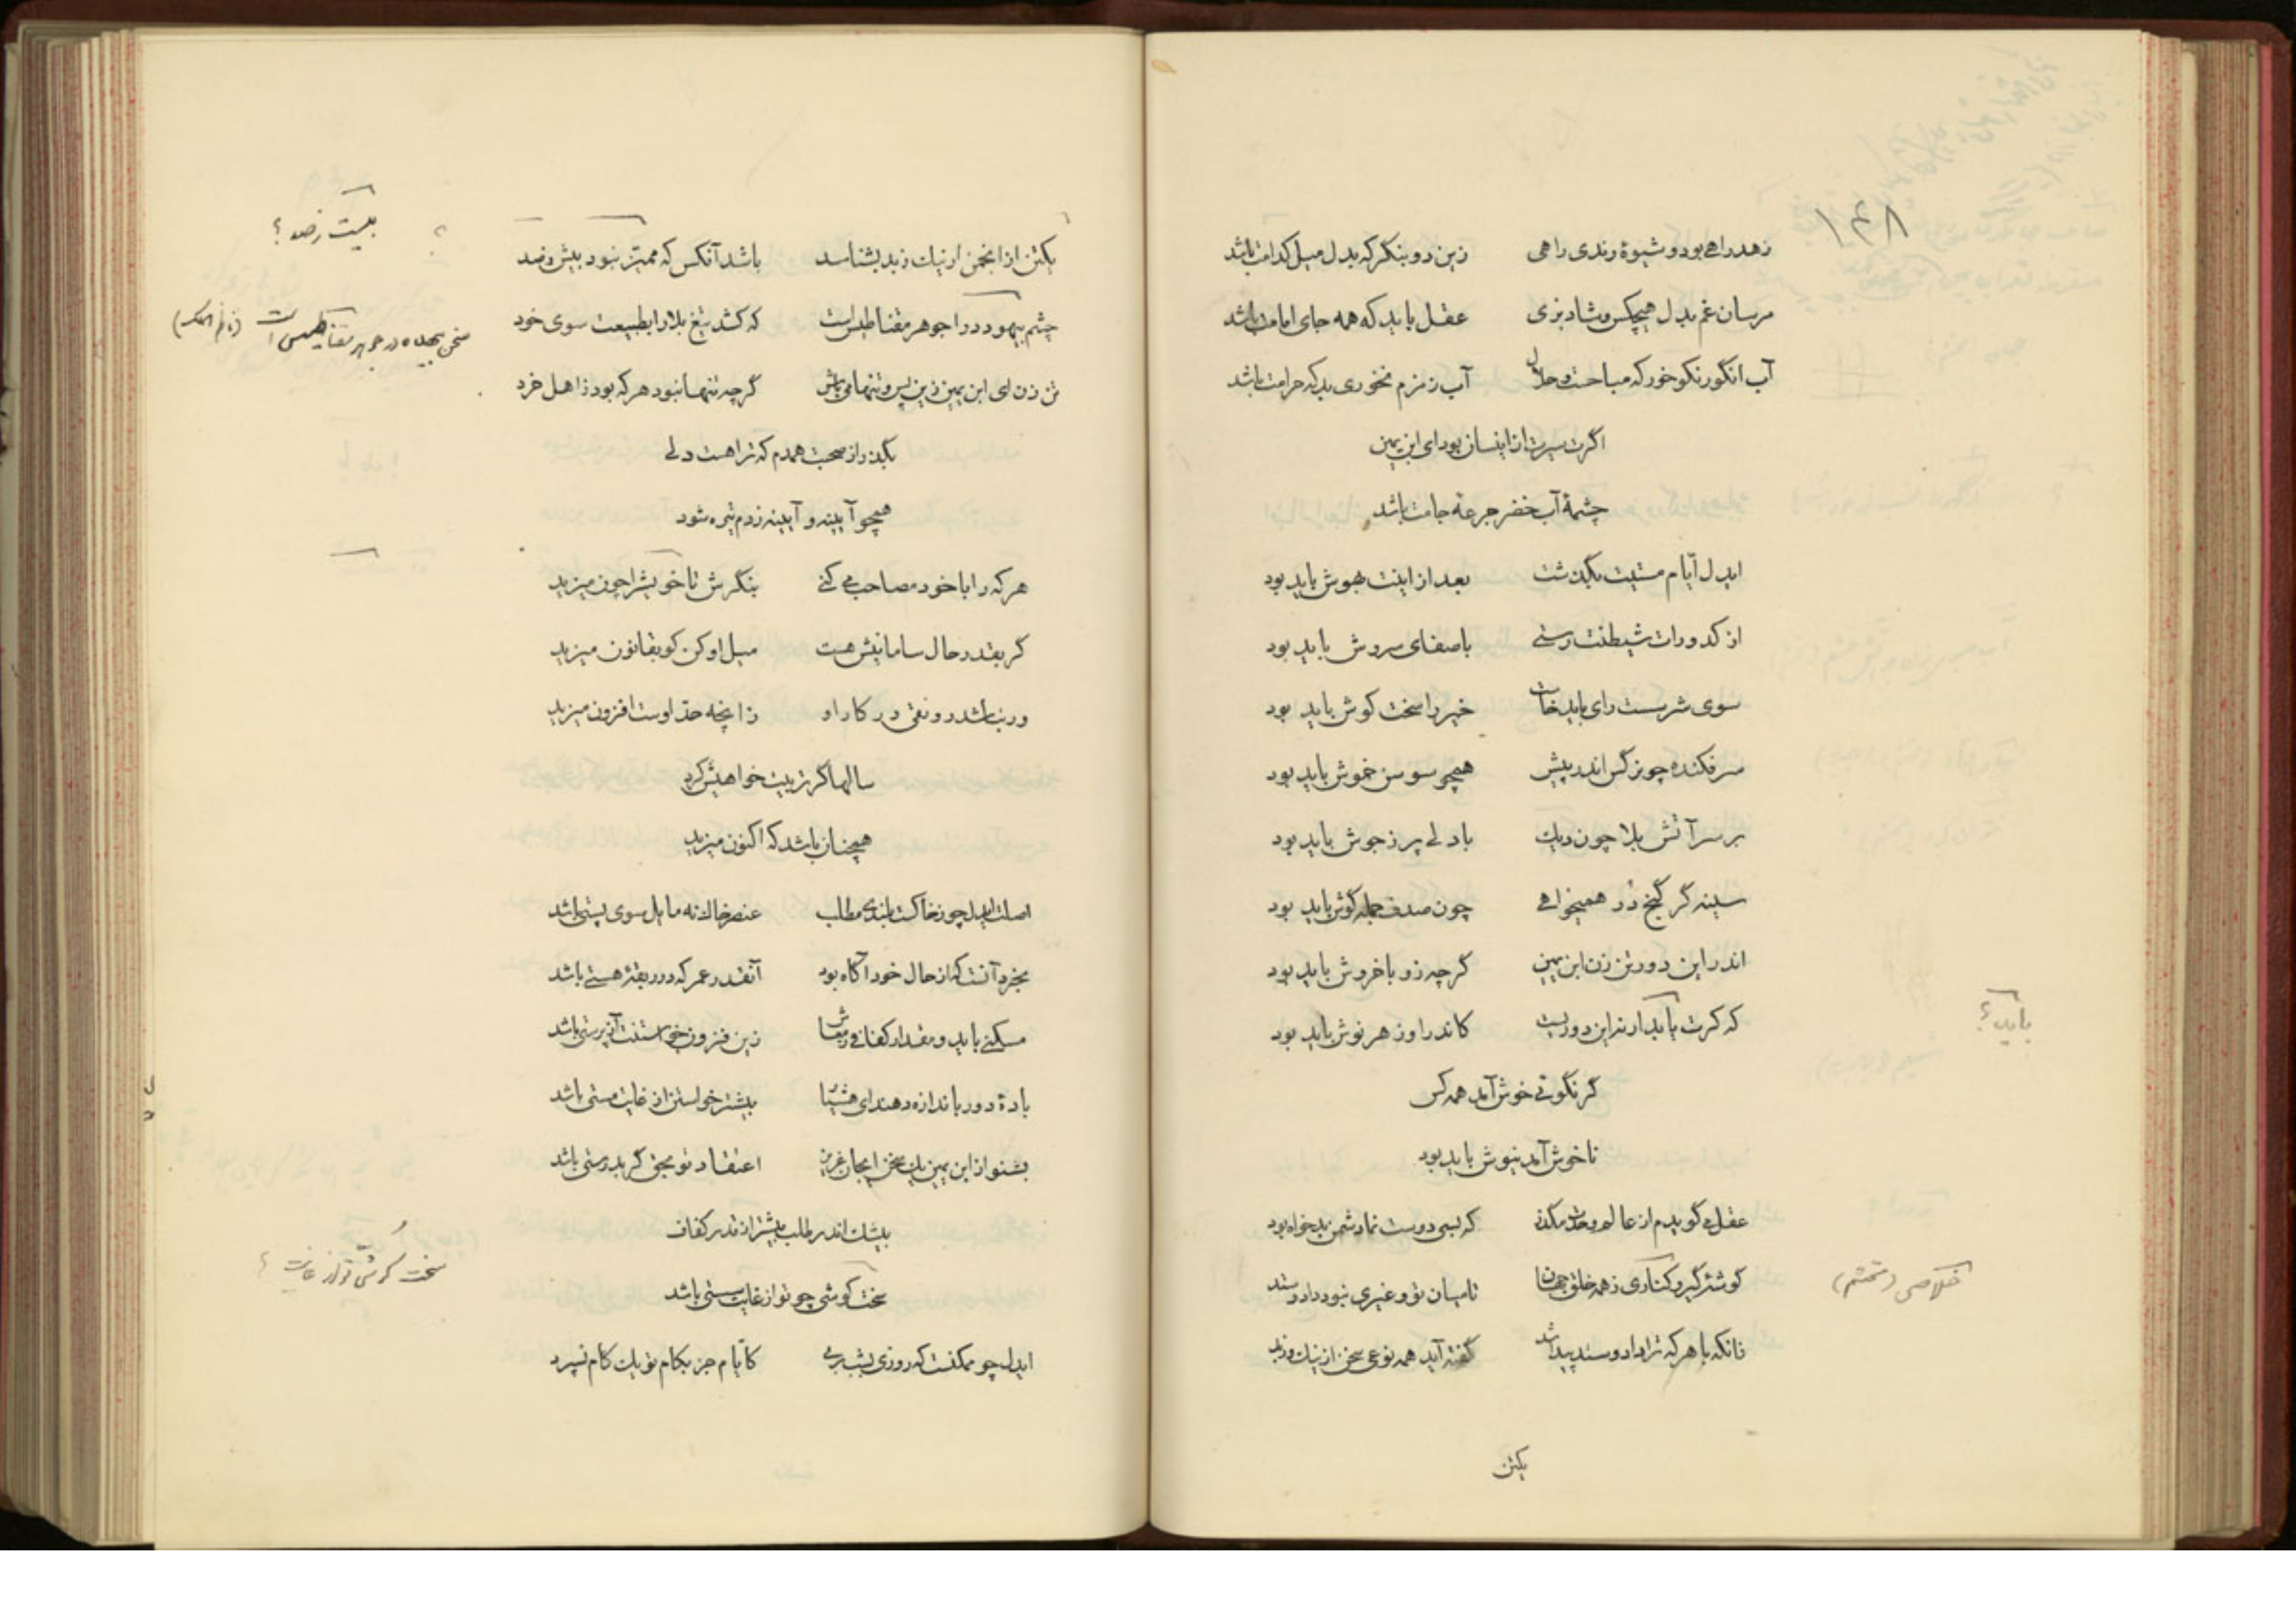 ۱۴۸
زهد راهی بود و شیوهٔ رندی راهی زین دو بنگر که بدل میل کدامت باشد
مرسان غم بدل هیچکس و شاد بزی عقل باید که همه جای امامت باشد
آب انگور نکو خور که مباحست و حلال آب زمزم نخوری بد که حرامت باشد
اگرت سیرت از اینسان بود ای ابن یمین
چشمهٔ آب خضر جرعهٔ جامت باشد
ایدل ایام مستیت بگذشت بعد از اینت بهوش باید بود
از کدورات شیطنت رستی باصفای سروش باید بود
سوی شر سست رای باید خاست خیر را سخت کوش باید بود
سرفکنده چو نرگس اندر پیش همچو سوسن خموش باید بود
بر سر آتش بلا چون دیک با دلی پر ز جوش باید بود
سینه گر گنج در همیخواهی چون صدف جمله گوش باید بود
اندر این دور تن زن ابن یمین گرچه زو با خروش باید بود
که کرت پایدار نه این دوریست کاندر او زهر نوش باید بود
باید؟
گر نگوئی خوش آمد همه کس
ناخوش آمد نیوش باید بود
عقل میگویدم از عالم وحدت مگذر که بسی دوست نما دشمن بدخواه بود
گوشهٔ گیر و کناری ز همه خلق جهان تا میان تو و غیری نبود داد و ستد
خلاصی (ششم)
زانکه با هر که ترا داد و ستد پیدا شد گفته آید همه نوعی سخن از نیک و ز بد
یکتن
یکتن از انجمن ار نیک ز بد بشناسد باشد آنکس که ممیز نبود بیش ز صد
بیست ز صد؟
چشم بیهوده درا جوهر مقناطیس است که کشد تیغ بلا را بطبیعت سوی خود
سخن بیهده در جوهر مقناطیس است
تن زن ای ابن یمین زین پس و تنها می باش گرچه تنها نبود هر که بود ز اهل خرد
بگذر از صحبت همدم که ترا هست دلی
همچو آیینه و آیینه ز دم تیره شود
هر که را با خود مصاحب می کنی بنگرش تا خویش را چون میزید
گر بقدر حال سامانیش هست میل او کن کو بقانون میزید
ور نباشد رونقی در کار او زانچه حد اوست افزون میزید
سالها گر تربیت خواهیش کرد
همچنان باشد که اکنون میزید
اصلت ایدل چو ز خاکست بلندی مطلب عنصر خاک نه مایل سوی پستی باشد
بخرد آنست که از حال خود آگاه بود آنقدر عمر که در ربقهٔ هستی باشد
مسکنی باید و مقدار کفافی ز معاش زین فزون خواستنت آز پرستی باشد
بادهٔ دور باندازه دهند ای هشیار بیشتر خواستن از غایت مستی باشد
بشنو از ابن یمین یک سخن ای جان عزیز اعتقاد تو بحق گر بدرستی باشد
بیشک اندر طلب بیشتر از قدر کفاف
سخت کوشی چو تو از غایت سستی باشد
سخت کوشی تو از غایت ؟
ایدل چو ممکنست که روزی بشب بری کایام جز بکام تو یک کام نسپرد